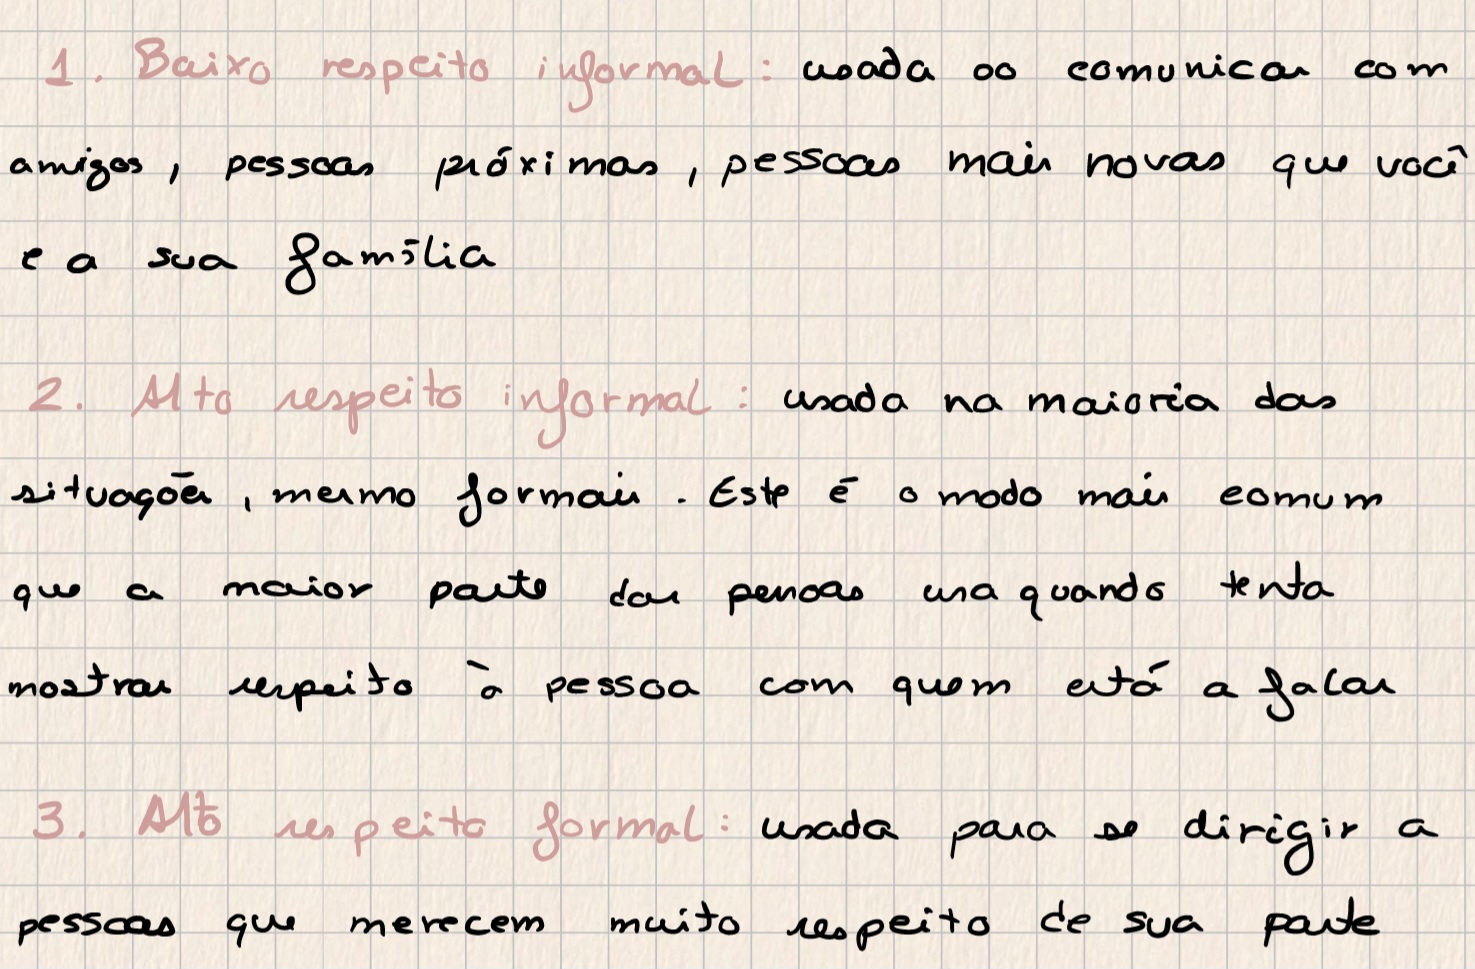 1. Baixo respeito informal: usada ao comunicar com
amigos, pessoas próximas, pessoas mais novas que você
e a sua família
2. Alto respeito informal: usada na maioria das
situações, mesmo formais. Este é o modo mais comum
que a maior parte das pessoas usa quando tenta
mostrar respeito à pessoa com quem está a falar
3. Alto respeito formal: usada para se dirigir a
pessoas que merecem muito respeito de sua parte